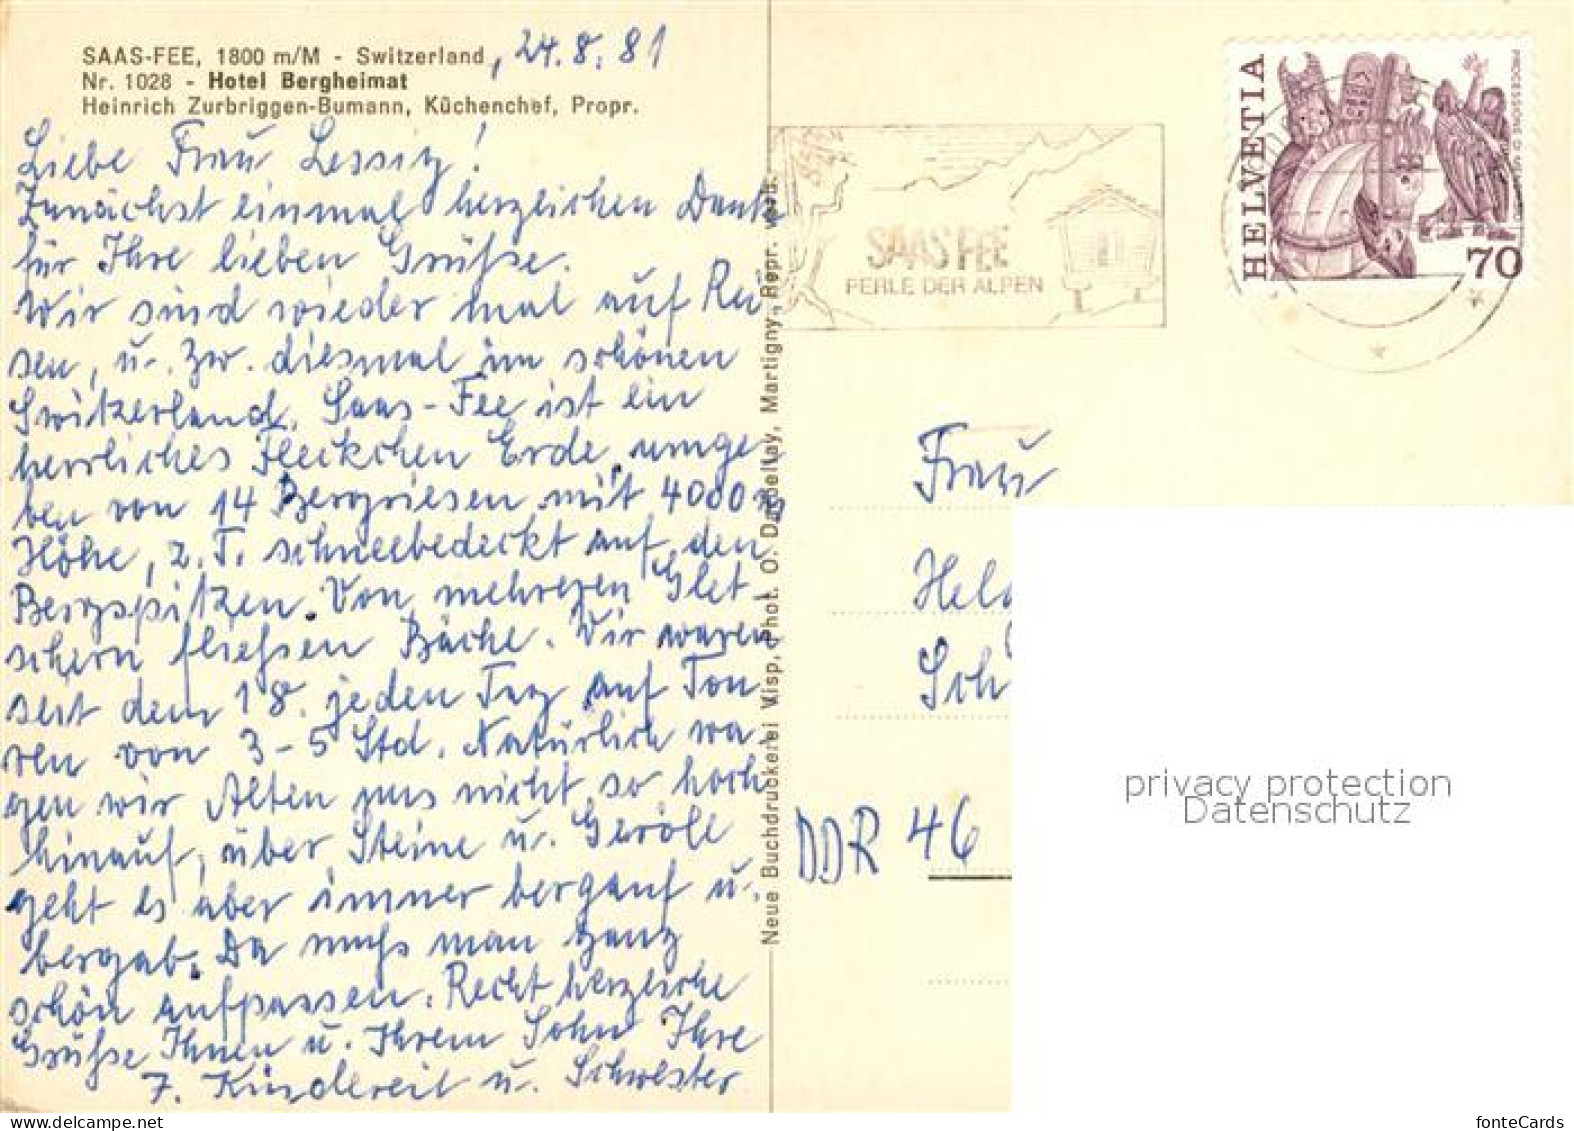 SAAS-FEE, 1800 m/M - Switzerland, 24.8.81
Nr. 1028 - Hotel Bergheimat
Heinrich Zurbriggen-Bumann, Küchenchef, Propr.
Liebe Frau Lessig!
Zunächst einmal herzlichen Dank
für Ihre lieben Grüße.
Wir sind wieder mal auf Rei
sen, u. zw. diesmal im schönen
Switzerland. Saas-Fee ist ein
herrliches Fleckchen Erde, umge
ben von 14 Bergriesen mit 4000 m
Höhe, z.T. schneebedeckt auf den
Bergspitzen. Von mehreren Glet
schern fließen Bäche. Wir waren
seit dem 18. jeden Tag auf Tou
ren von 3-5 Std. Natürlich wa
gen wir Alten uns nicht so hoch
hinauf, über Steine u. Geröll
geht es aber immer bergauf u.
bergab. Da muß man ganz
schön aufpassen. Recht herzliche
Grüße Ihnen u. Ihrem Sohn Ihre
F. Kindereit u. Schwester
Neue Buchdruckerei Visp, Phot. O. Darbellay, Martigny, Repr. verb.
SAAS FEE
PERLE DER ALPEN
HELVETIA
PROCESSIONE DI
70
Frau
Hel
Sch
DDR 46
privacy protection
Datenschutz
www.delcampe.net
fonteCards